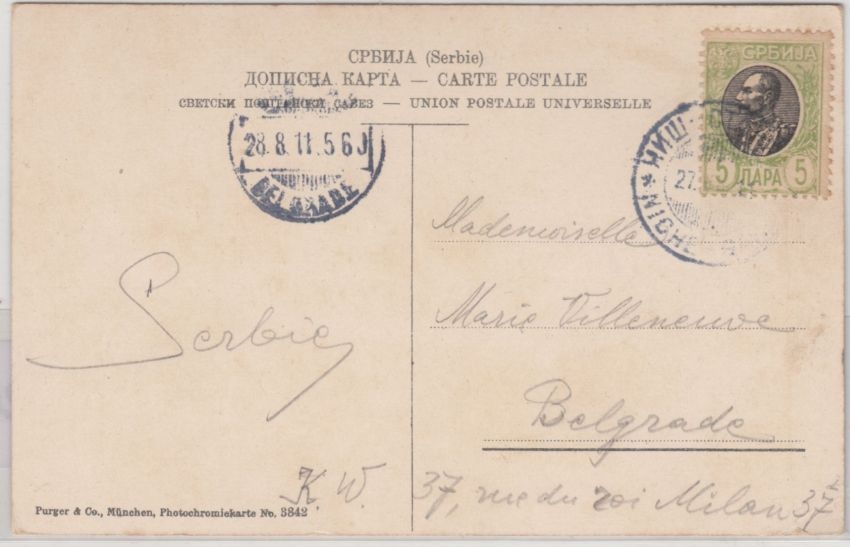 СРБИЈА (Serbie)
ДОПИСНА КАРТА — CARTE POSTALE
СВЕТСКИ ПОШТАНСКИ САВЕЗ — UNION POSTALE UNIVERSELLE
СРБИЈА
5 ПАРА 5
28.8.11.
BELGRADE
НИШ
27.
NICHE
Mademoiselle
Marie Villeneuve
Belgrade
37, rue du roi Milan 37
Serbie
K. W.
Purger & Co., München, Photochromiekarte No. 3842